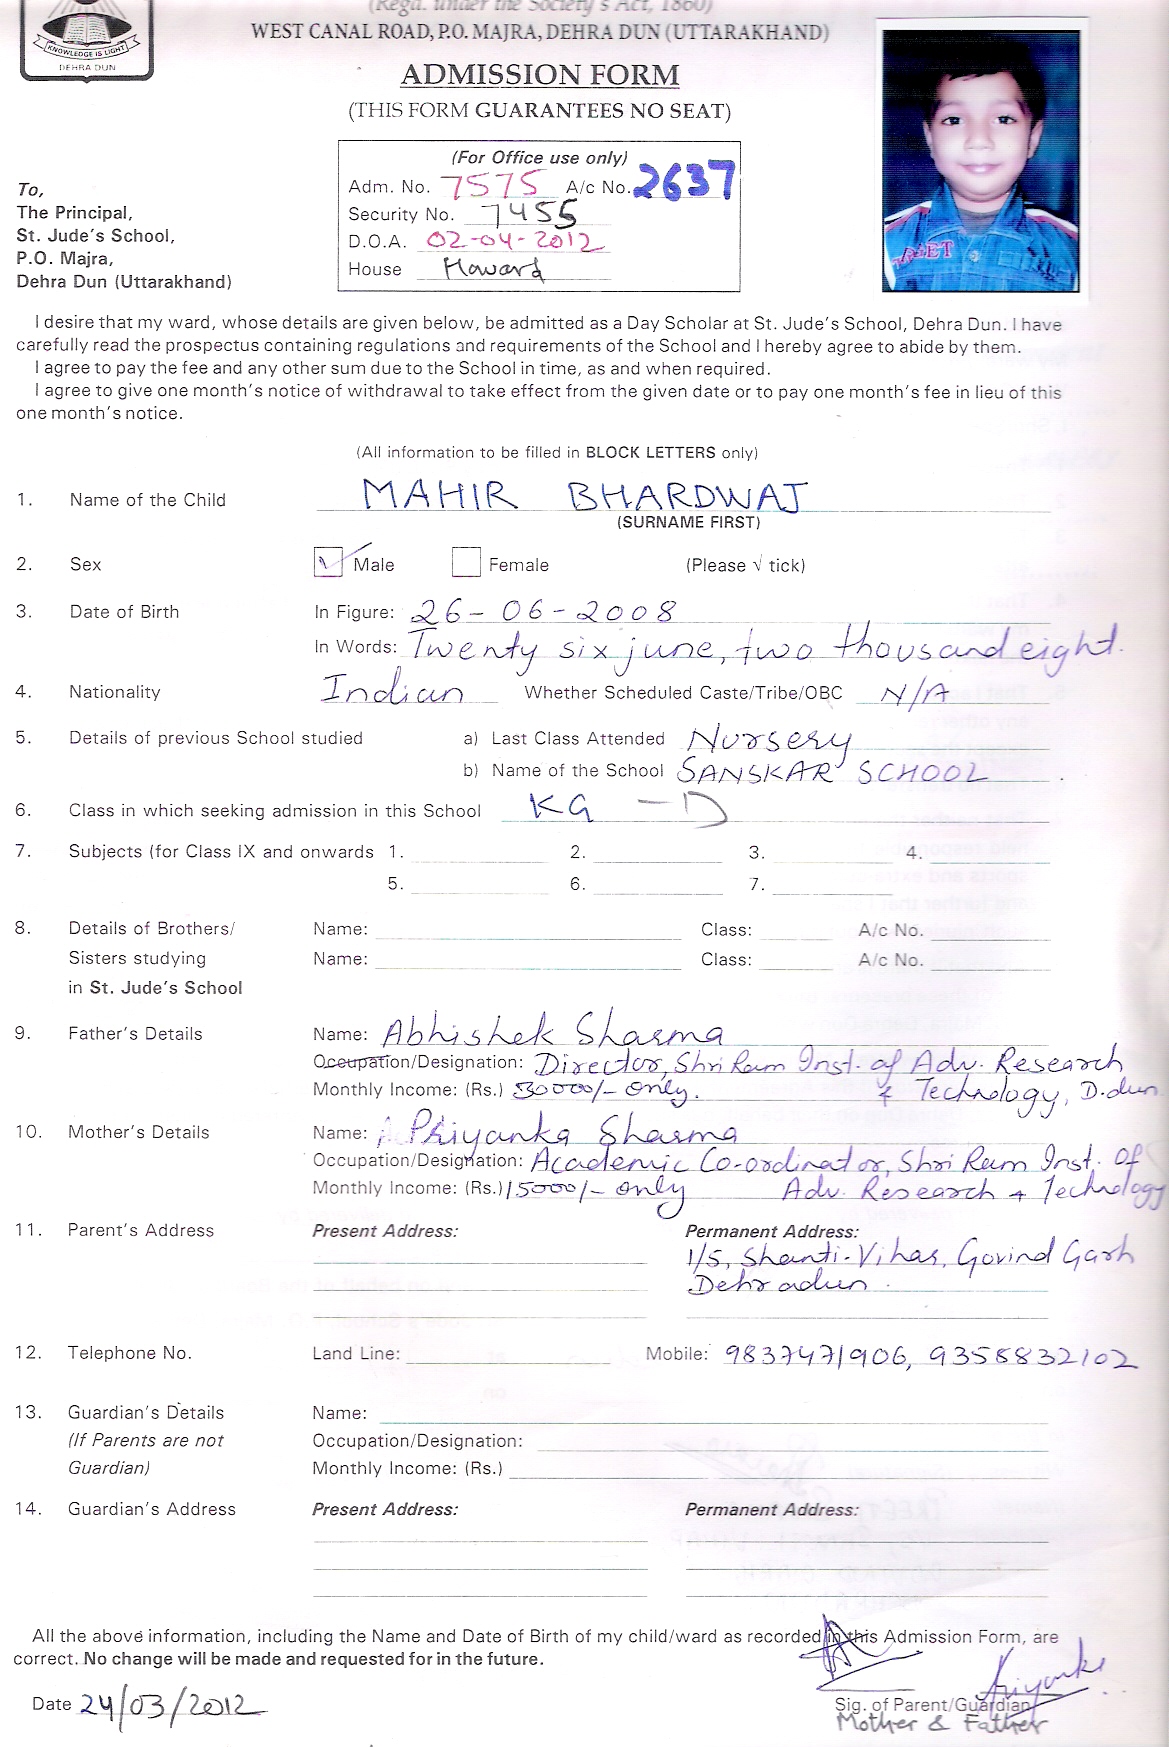 (Regd. under the Society's Act, 1860)
WEST CANAL ROAD, P.O. MAJRA, DEHRA DUN (UTTARAKHAND)
KNOWLEDGE IS LIGHT
DEHRA DUN
ADMISSION FORM
(THIS FORM GUARANTEES NO SEAT)
(For Office use only)
Adm. No. 7575 A/c No. 2637
Security No. 7455
D.O.A. 02-04-2012
House Howard
To,
The Principal,
St. Jude's School,
P.O. Majra,
Dehra Dun (Uttarakhand)
I desire that my ward, whose details are given below, be admitted as a Day Scholar at St. Jude's School, Dehra Dun. I have
carefully read the prospectus containing regulations and requirements of the School and I hereby agree to abide by them.
I agree to pay the fee and any other sum due to the School in time, as and when required.
I agree to give one month's notice of withdrawal to take effect from the given date or to pay one month's fee in lieu of this
one month's notice.
(All information to be filled in BLOCK LETTERS only)
1. Name of the Child MAHIR BHARDWAJ
(SURNAME FIRST)
2. Sex √ Male Female (Please √ tick)
3. Date of Birth In Figure: 26-06-2008
In Words: Twenty six june, two thousand eight.
4. Nationality Indian Whether Scheduled Caste/Tribe/OBC N/A
5. Details of previous School studied a) Last Class Attended Nursery
b) Name of the School SANSKAR SCHOOL
6. Class in which seeking admission in this School KG - D
7. Subjects (for Class IX and onwards 1. 2. 3. 4.
5. 6. 7.
8. Details of Brothers/ Name: Class: A/c No.
Sisters studying Name: Class: A/c No.
in St. Jude's School
9. Father's Details Name: Abhishek Sharma
Occupation/Designation: Director, Shri Ram Inst. of Adv. Research
Monthly Income: (Rs.) 30000/- only. & Technology, D.dun
10. Mother's Details Name: Priyanka Sharma
Occupation/Designation: Academic Co-ordinator, Shri Ram Inst. Of
Monthly Income: (Rs.) 15000/- only Adv. Research & Technology
11. Parent's Address Present Address: Permanent Address:
1/5, Shanti-Vihar, Govind Garh
Dehradun.
12. Telephone No. Land Line: Mobile: 9837471906, 9358832102
13. Guardian's Details Name:
(If Parents are not Occupation/Designation:
Guardian) Monthly Income: (Rs.)
14. Guardian's Address Present Address: Permanent Address:
All the above information, including the Name and Date of Birth of my child/ward as recorded in this Admission Form, are
correct. No change will be made and requested for in the future.
Priyanka
Date 24/03/2012 Sig. of Parent/Guardian
Mother & Father